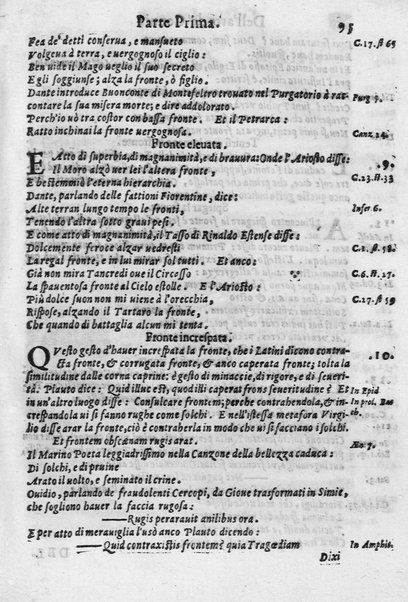 Parte Prima. 95
Fea de' detti conserua, e mansueto C.17. st 65
Volgeua à terra, e uergognoso il ciglio:
Ben uide il Mago ueglio il suo secreto
E gli soggiunse; alza la fronte, ò figlio.
Dante introduce Buonconte di Montefeltro trouato nel Purgatorio à rac-
contare la sua misera morte; e dire addolorato. Purg 5.
Perch'io uò tra costor con bassa fronte. Et il Petrarca:
Ratto inchinai la fronte uergognosa. Canz 24.
Fronte eleuata.
E Atto di superbia, di magnanimità, e di brauura: Onde l'Ariosto disse: .9.
Il Moro alzò uer lei l'altera fronte, C.23. st.33
E bestemmiò l'eterna hierarchia.
Dante, parlando delle fattioni Fiorentine, dice:
Alte terran lungo tempo le fronti, Infer 6.
Tenendo l'altra sotto graui pesi.
E come atto di magnanimità, il Tasso di Rinaldo Estense disse:
Dolcemente feroce alzar uedresti C.1. st. 58.
La regal fronte, e in lui mirar sol tutti. Et anco:
Già non mira Tancredi oue il Circasso C.6. st.27.
La spauentosa fronte al Cielo estolle. E l'Ariosto:
Più dolce suon non mi viene à l'orecchia, C.17. st 59
Rispose, alzando il Tartaro la fronte,
Che quando di battaglia alcun mi tenta.
Fronte increspata.
QVesto gesto d'hauer increspata la fronte, che i Latini dicono contra- .10.
cta fronte, & corrugata fronte; & anco caperata fronte; tolta la
similitudine dalle corna caprine è gesto di minaccie, di rigore, e di seueri-
tà. Plauto dice: Quid illuc est, quod illi caperat frons seueritudine? Et In Epid
in un'altro luogo disse: Consulcare frontem; perche contrahendola, & in- In prol. Bac
crespandola ui si fanno rughe come solchi. E nell'istessa metafora Virgi-
lio disse arar la fronte, ciò è contraherla in modo che ui si facciano i solchi.
Et frontem obscænam rugis arat. Æn 7.
Il Marino Poeta leggiadrissimo nella Canzone della bellezza caduca:
Di solchi, e di pruine
Arato il uolto, e seminato il crine.
Ouidio, parlando de fraudolenti Cercopi, da Gioue trasformati in Simie,
che sogliono hauer la faccia rugosa:
——Rugis perarauit anilibus ora.
E per atto di merauiglia l'usò anco Plauto dicendo:
——Quid contraxistis frontem? quia Tragœdiam In Amphit.
Dixi